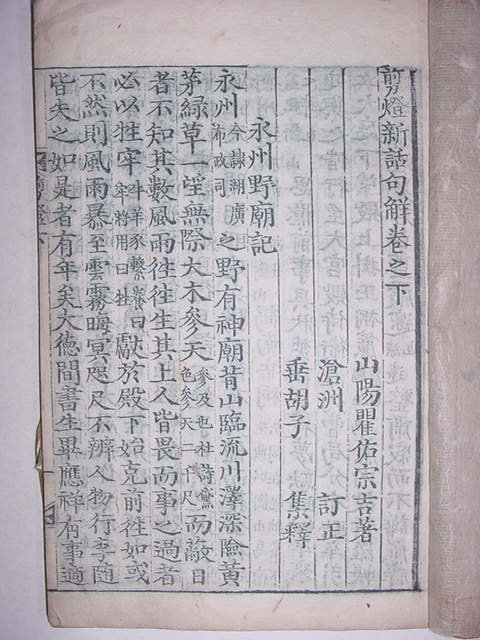 剪燈新話句解卷之下
山陽瞿佑宗吉著
滄洲訂正
垂胡子集釋
永州野廟記
永州今隷湖廣布政司之野有神廟背山臨流川澤深險黃
茅綠草一望無際大木參天參及也杜詩黛色參天二千尺而蔽日
者不知其數風雨徃徃生其上人皆畏而事之過者
必以牲牢牛羊豕繫養曰牢將用曰牲獻於殿下始克前徃如或
不然則風雨暴至雲霧晦冥咫尺不辨人物行李隨
皆失之如是者有年矣大德間書生畢應祥有事適